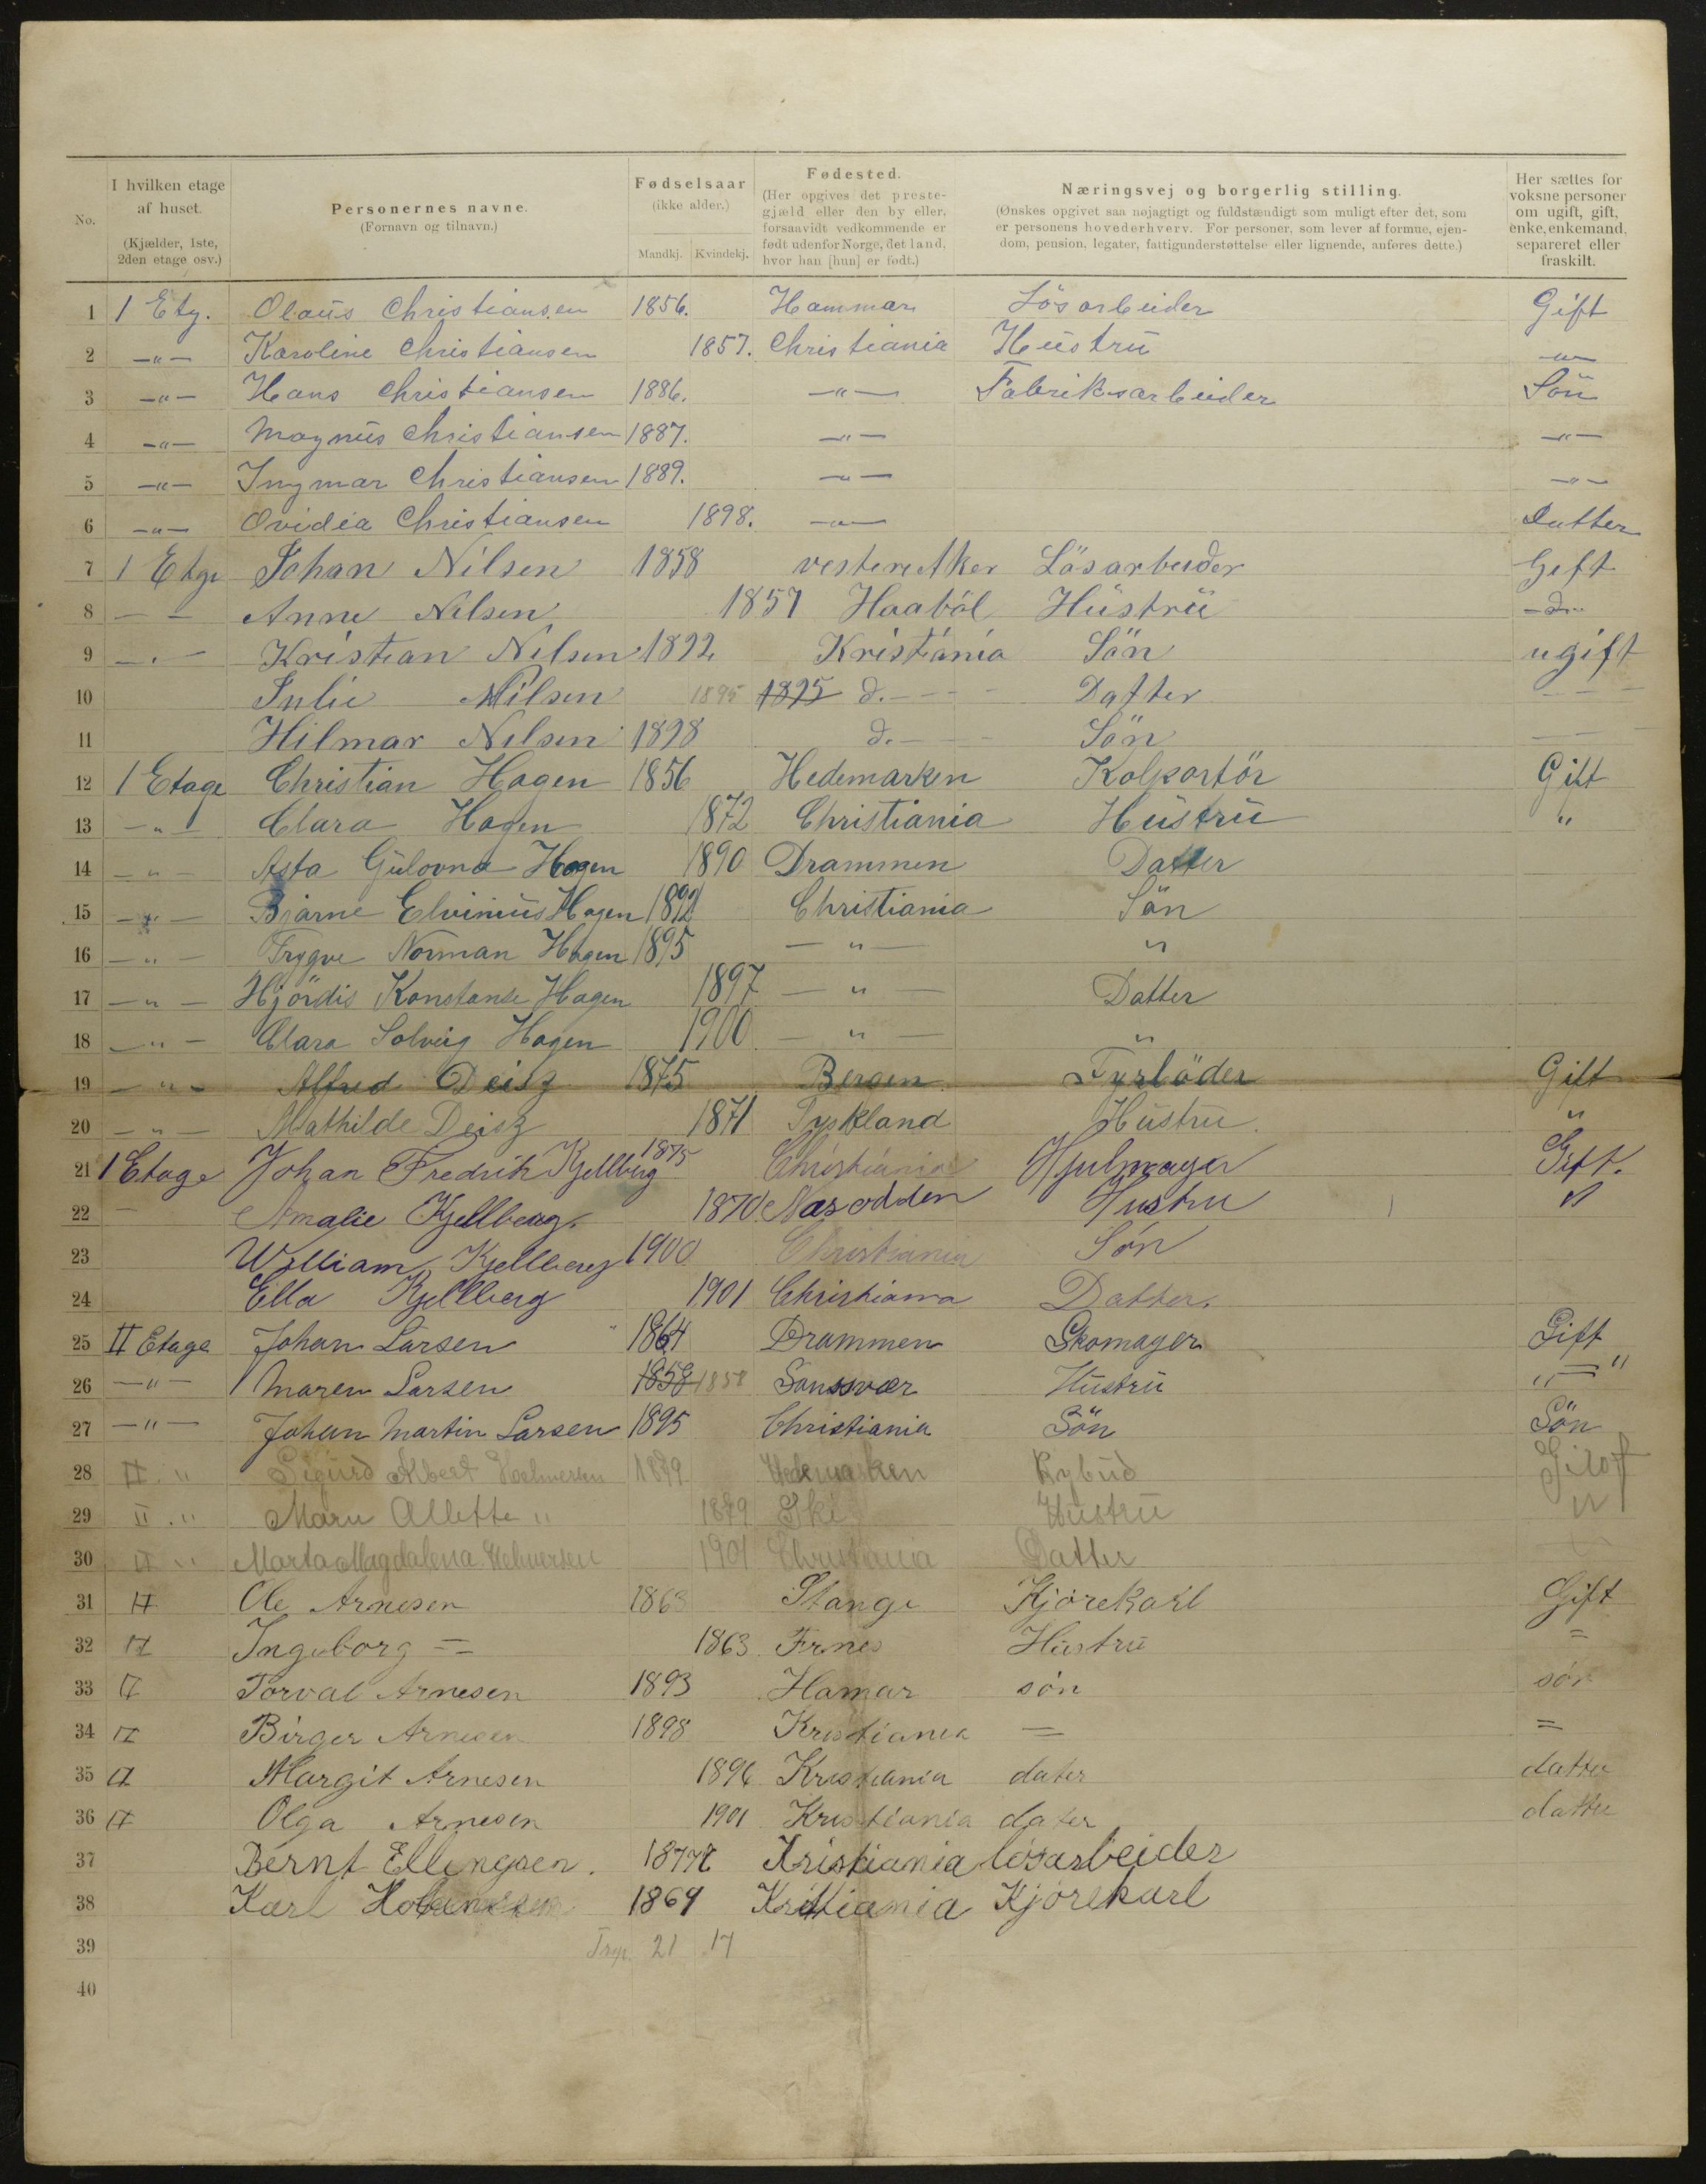 No. I hvilken etage af huset. (Kjælder, 1ste, 2den etage osv.) Personernes navne. (Fornavn og tilnavn.) Fødselsaar (ikke alder.) Mandkj. Kvindekj. Fødested. (Her opgives det prestegjæld eller den by eller, forsaavidt vedkommende er født udenfor Norge, det land, hvor han [hun] er født.) Næringsvej og borgerlig stilling. (Ønskes opgivet saa nøjagtigt og fuldstændigt som muligt efter det, som er personens hovederhverv. For personer, som lever af formue, ejendom, pension, legater, fattigunderstøttelse eller lignende, anføres dette.) Her sættes for voksne personer om ugift, gift, enke, enkemand, separeret eller fraskilt.
1 1 Etg. Olaus Christiansen 1856. Hammar Lösarbeider Gift
2 -"- Karoline Christiansen 1857. Christiania Hustru -"-
3 -"- Hans Christiansen 1886. -"- Fabriksarbeider Sön
4 -"- Magnus Christiansen 1887. -"- -"-
5 -"- Ingmar Christiansen 1889. -"- -"-
6 -"- Ovidia Christiansen 1898. -"- Datter
7 1 Etge Johan Nilsen 1858 vestere Aker Lösarbeider Gift
8 - - Anne Nilsen 1857 Haaböl Hustru -d-
9 - . - Kristian Nilsen 1892 Kristiania Sön ugift
10 Julie Nilsen 1895 1895 d. - - - Datter - - -
11 Hilmar Nilsen 1898 d. - - - Sön - -
12 1 Etage Christian Hagen 1856 Hedemarken Kolportör Gift
13 -"- Clara Hagen 1872 Christiania Hustru "
14 -"- Asta Gulovna Hagen 1890 Drammen Datter
15 -"- Bjarne Elvinius Hagen 1892 Christiania Sön
16 -"- Trygve Norman Hagen 1895 -"- "
17 -"- Hjördis Konstanse Hagen 1897 -"- Datter
18 -"- Clara Solveig Hagen 1900 -"- "
19 -"- Alfred Deisz 1875 Bergen Fyrböder Gift
20 -"- Mathilde Deisz 1871 Tyskland Hustru. "
21 1 Etage Johan Fredrik Kjellberg 1875 Christiania Hjulmager Gift.
22 - Amalie Kjellberg. 1870. Næsodden Hustru "
23 William Kjellberg 1900 Christiania Sön
24 Ella Kjellberg 1901 Christiania Datter.
25 II Etage Johan Larsen 1864 Drammen Skomager Gift
26 -"- Maren Larsen 1858 1858 Sandsvær Hustru "-"
27 -"- Johan Martin Larsen 1895 Christiania Sön Sön
28 II " Sigurd Albert 1879 Hedemarken Bybud Gift
29 II . " Marie Allette " 1879 Ski Hustru "
30 II " Marta Magdalena 1901 Christiania Datter
31 II Ole Arnesen 1863 Stange Kjörekarl Gift
32 II Ingeborg = 1863 Hustru =
33 II Torval Arnesen 1893 Hamar sön sön
34 II Birger Arnesen 1898 Kristiania = =
35 II Margit Arnesen 1896 Kristiania dater datter
36 II Olga Arnesen 1901 Kristiania dater datter
37 Bernt Ellingsen. Kristiania lösarbeider
38 Karl 1869 Kristiania Kjörekarl
39 21 17
40